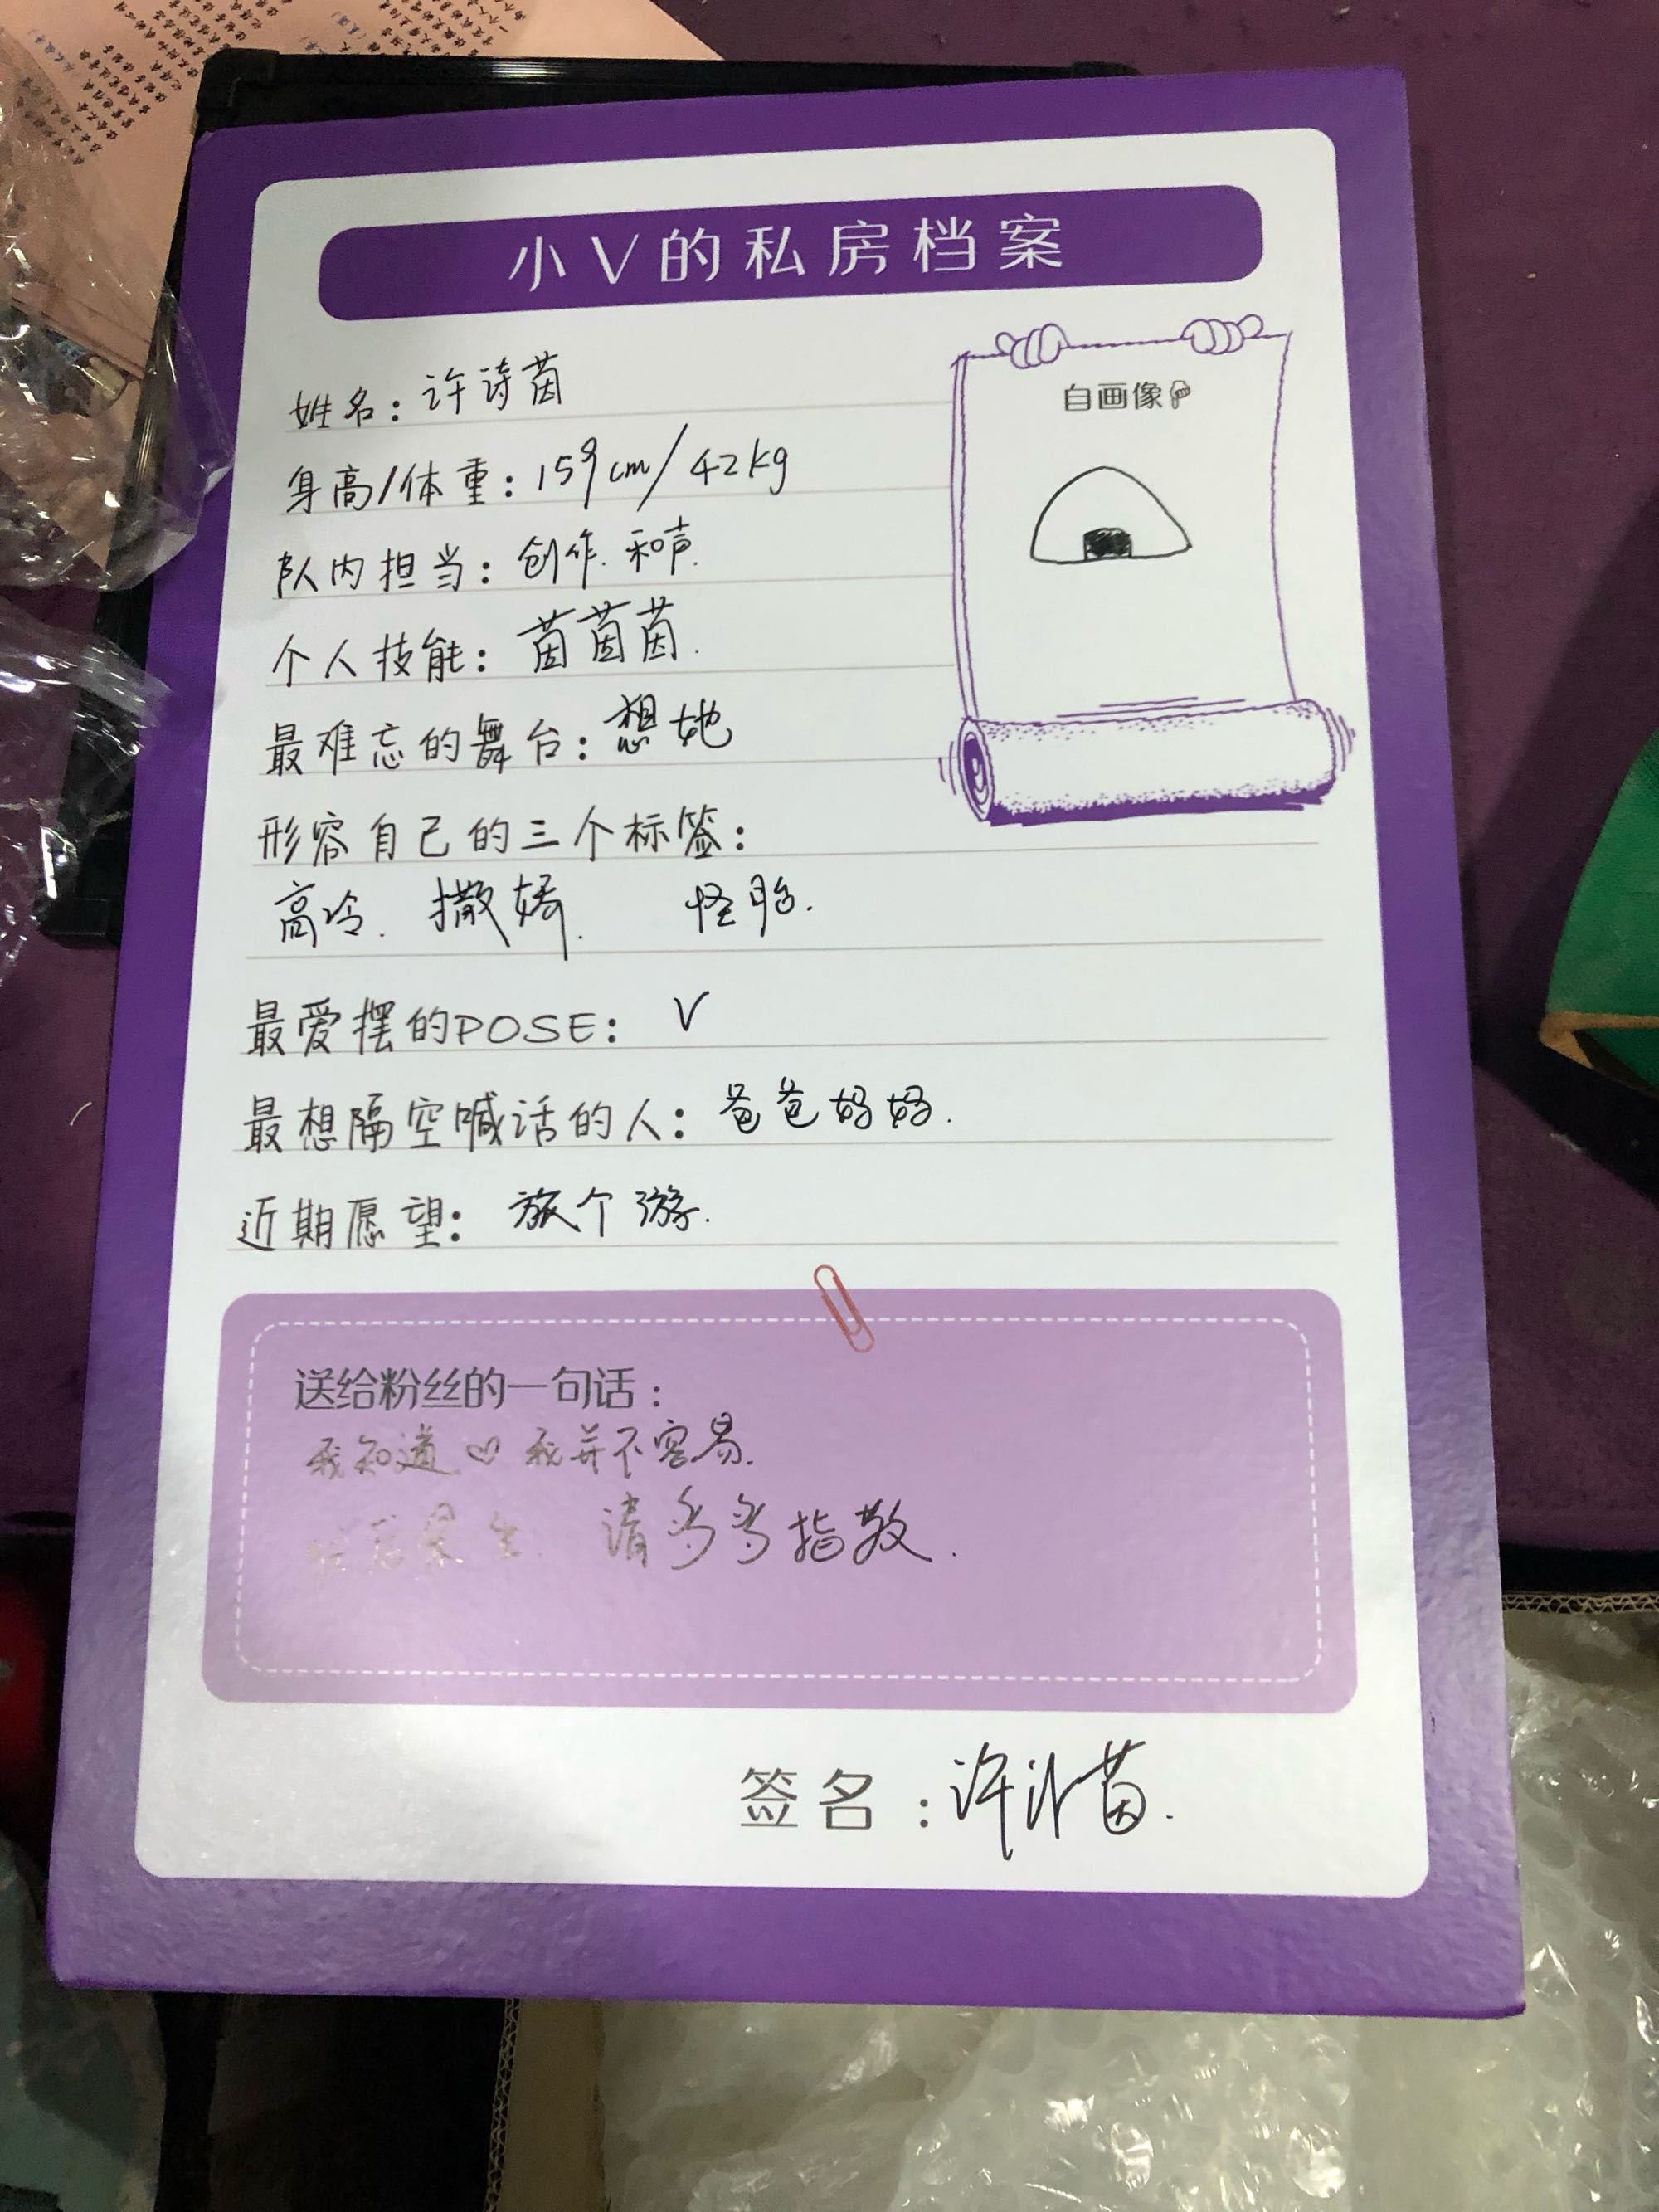 小V的私房档案
自画像
姓名：许诗茵
身高/体重：159cm/42kg
队内担当：创作.和声.
个人技能：茵茵茵.
最难忘的舞台：想她
形容自己的三个标签：
高冷.撒娇.怪胎.
最爱摆的POSE：V
最想隔空喊话的人：爸爸妈妈.
近期愿望：旅个游.
送给粉丝的一句话：
我知道♡我并不容易.
请多多指教.
签名：许诗茵.